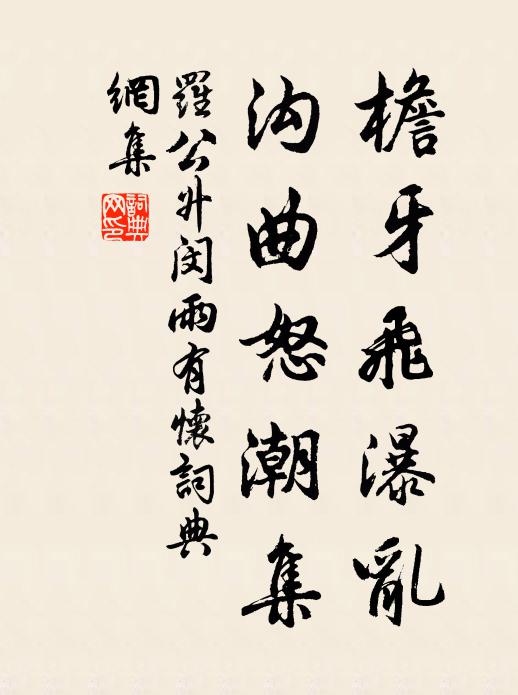 檐牙飛瀑亂
沟曲怒潮集
羅公升閔雨有懷詞典
網集
詞典
网印